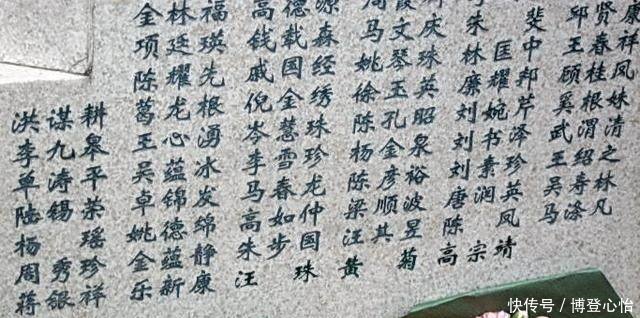 洪李单陆杨周蒋
谋九涛锡 秀银
耕皋平荣瑶珍祥
金项陈葛王吴卓姚金乐
林廷耀龙心蕴锦德蕴新
福瑛先根湧冰发绵静康
高钱戚倪岑李马高朱汪
德载国金慧雪春如步
源森经绣珠珍龙仲国珠
周马姚徐陈杨陈梁汪黄
霞文琴玉孔金彦顺其
庆珠英昭泉裕波昱菊
朱林廉刘刘刘唐陈高
匡耀婉书素润 宗
斐中邦芹泽珍英凤靖
邱王顾奚武王吴马
贤春桂根渭绍寿涤
康祥凤妹清之林凡
快传号 / 博登心怡